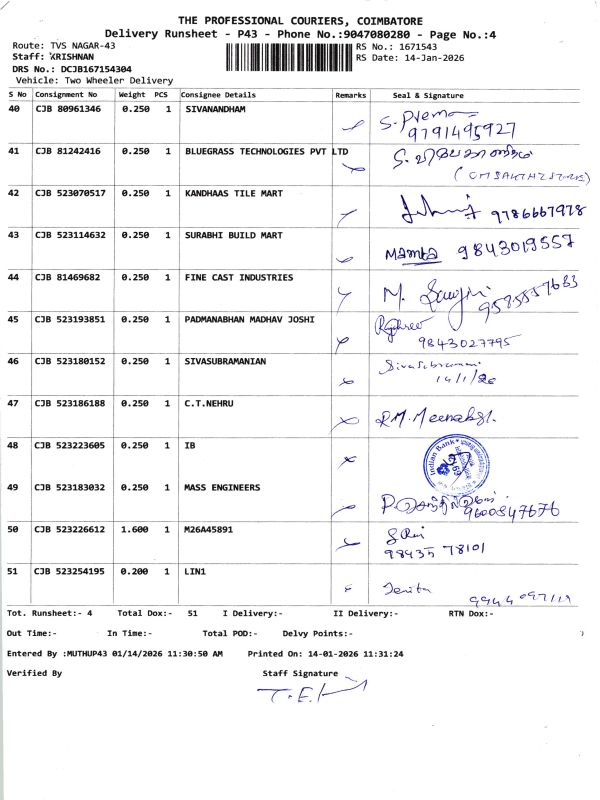 THE PROFESSIONAL COURIERS, COIMBATORE
Delivery Runsheet - P43 - Phone No.:9047080280 - Page No.:4
Route: TVS NAGAR-43 RS No.: 1671543
Staff: KRISHNAN RS Date: 14-Jan-2026
DRS No.: DCJB167154304
Vehicle: Two Wheeler Delivery
S No Consignment No Weight PCS Consignee Details Remarks Seal & Signature
40 CJB 80961346 0.250 1 SIVANANDHAM S. Prema
9791495927
41 CJB 81242416 0.250 1 BLUEGRASS TECHNOLOGIES PVT LTD
42 CJB 523070517 0.250 1 KANDHAAS TILE MART 9786667978
43 CJB 523114632 0.250 1 SURABHI BUILD MART Mamta 9843019557
44 CJB 81469682 0.250 1 FINE CAST INDUSTRIES M.
45 CJB 523193851 0.250 1 PADMANABHAN MADHAV JOSHI
9843027795
46 CJB 523180152 0.250 1 SIVASUBRAMANIAN
14/1/26
47 CJB 523186188 0.250 1 C.T.NEHRU R.M.
48 CJB 523223605 0.250 1 IB Indian Bank
49 CJB 523183032 0.250 1 MASS ENGINEERS
9600847676
50 CJB 523226612 1.600 1 M26A45891
98435 78101
51 CJB 523254195 0.200 1 LIN1
Tot. Runsheet:- 4 Total Dox:- 51 I Delivery:- II Delivery:- RTN Dox:-
Out Time:- In Time:- Total POD:- Delvy Points:-
Entered By :MUTHUP43 01/14/2026 11:30:50 AM Printed On: 14-01-2026 11:31:24
Verified By Staff Signature